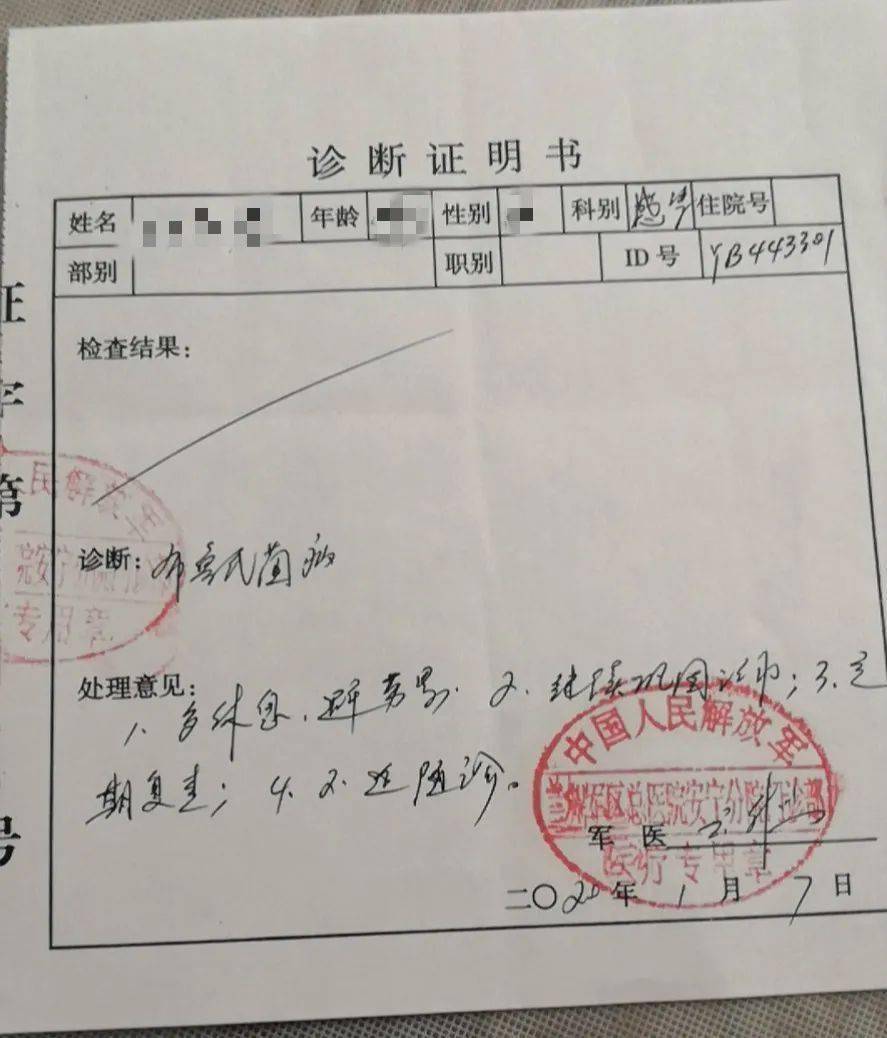 诊断证明书
姓名 年龄 性别 科别 感染 住院号
部别 职别 ID号 YB443301
检查结果:
诊断: 布鲁氏菌病
处理意见:
1、多休息、避免劳累、2、继续巩固治疗;3、定
期复查;4、不适随诊。
中国人民解放军
区总医院安宁分院门诊部
医疗专用章
军医
二〇20年1月7日
证字第
号
民解放军
安宁分
专用章